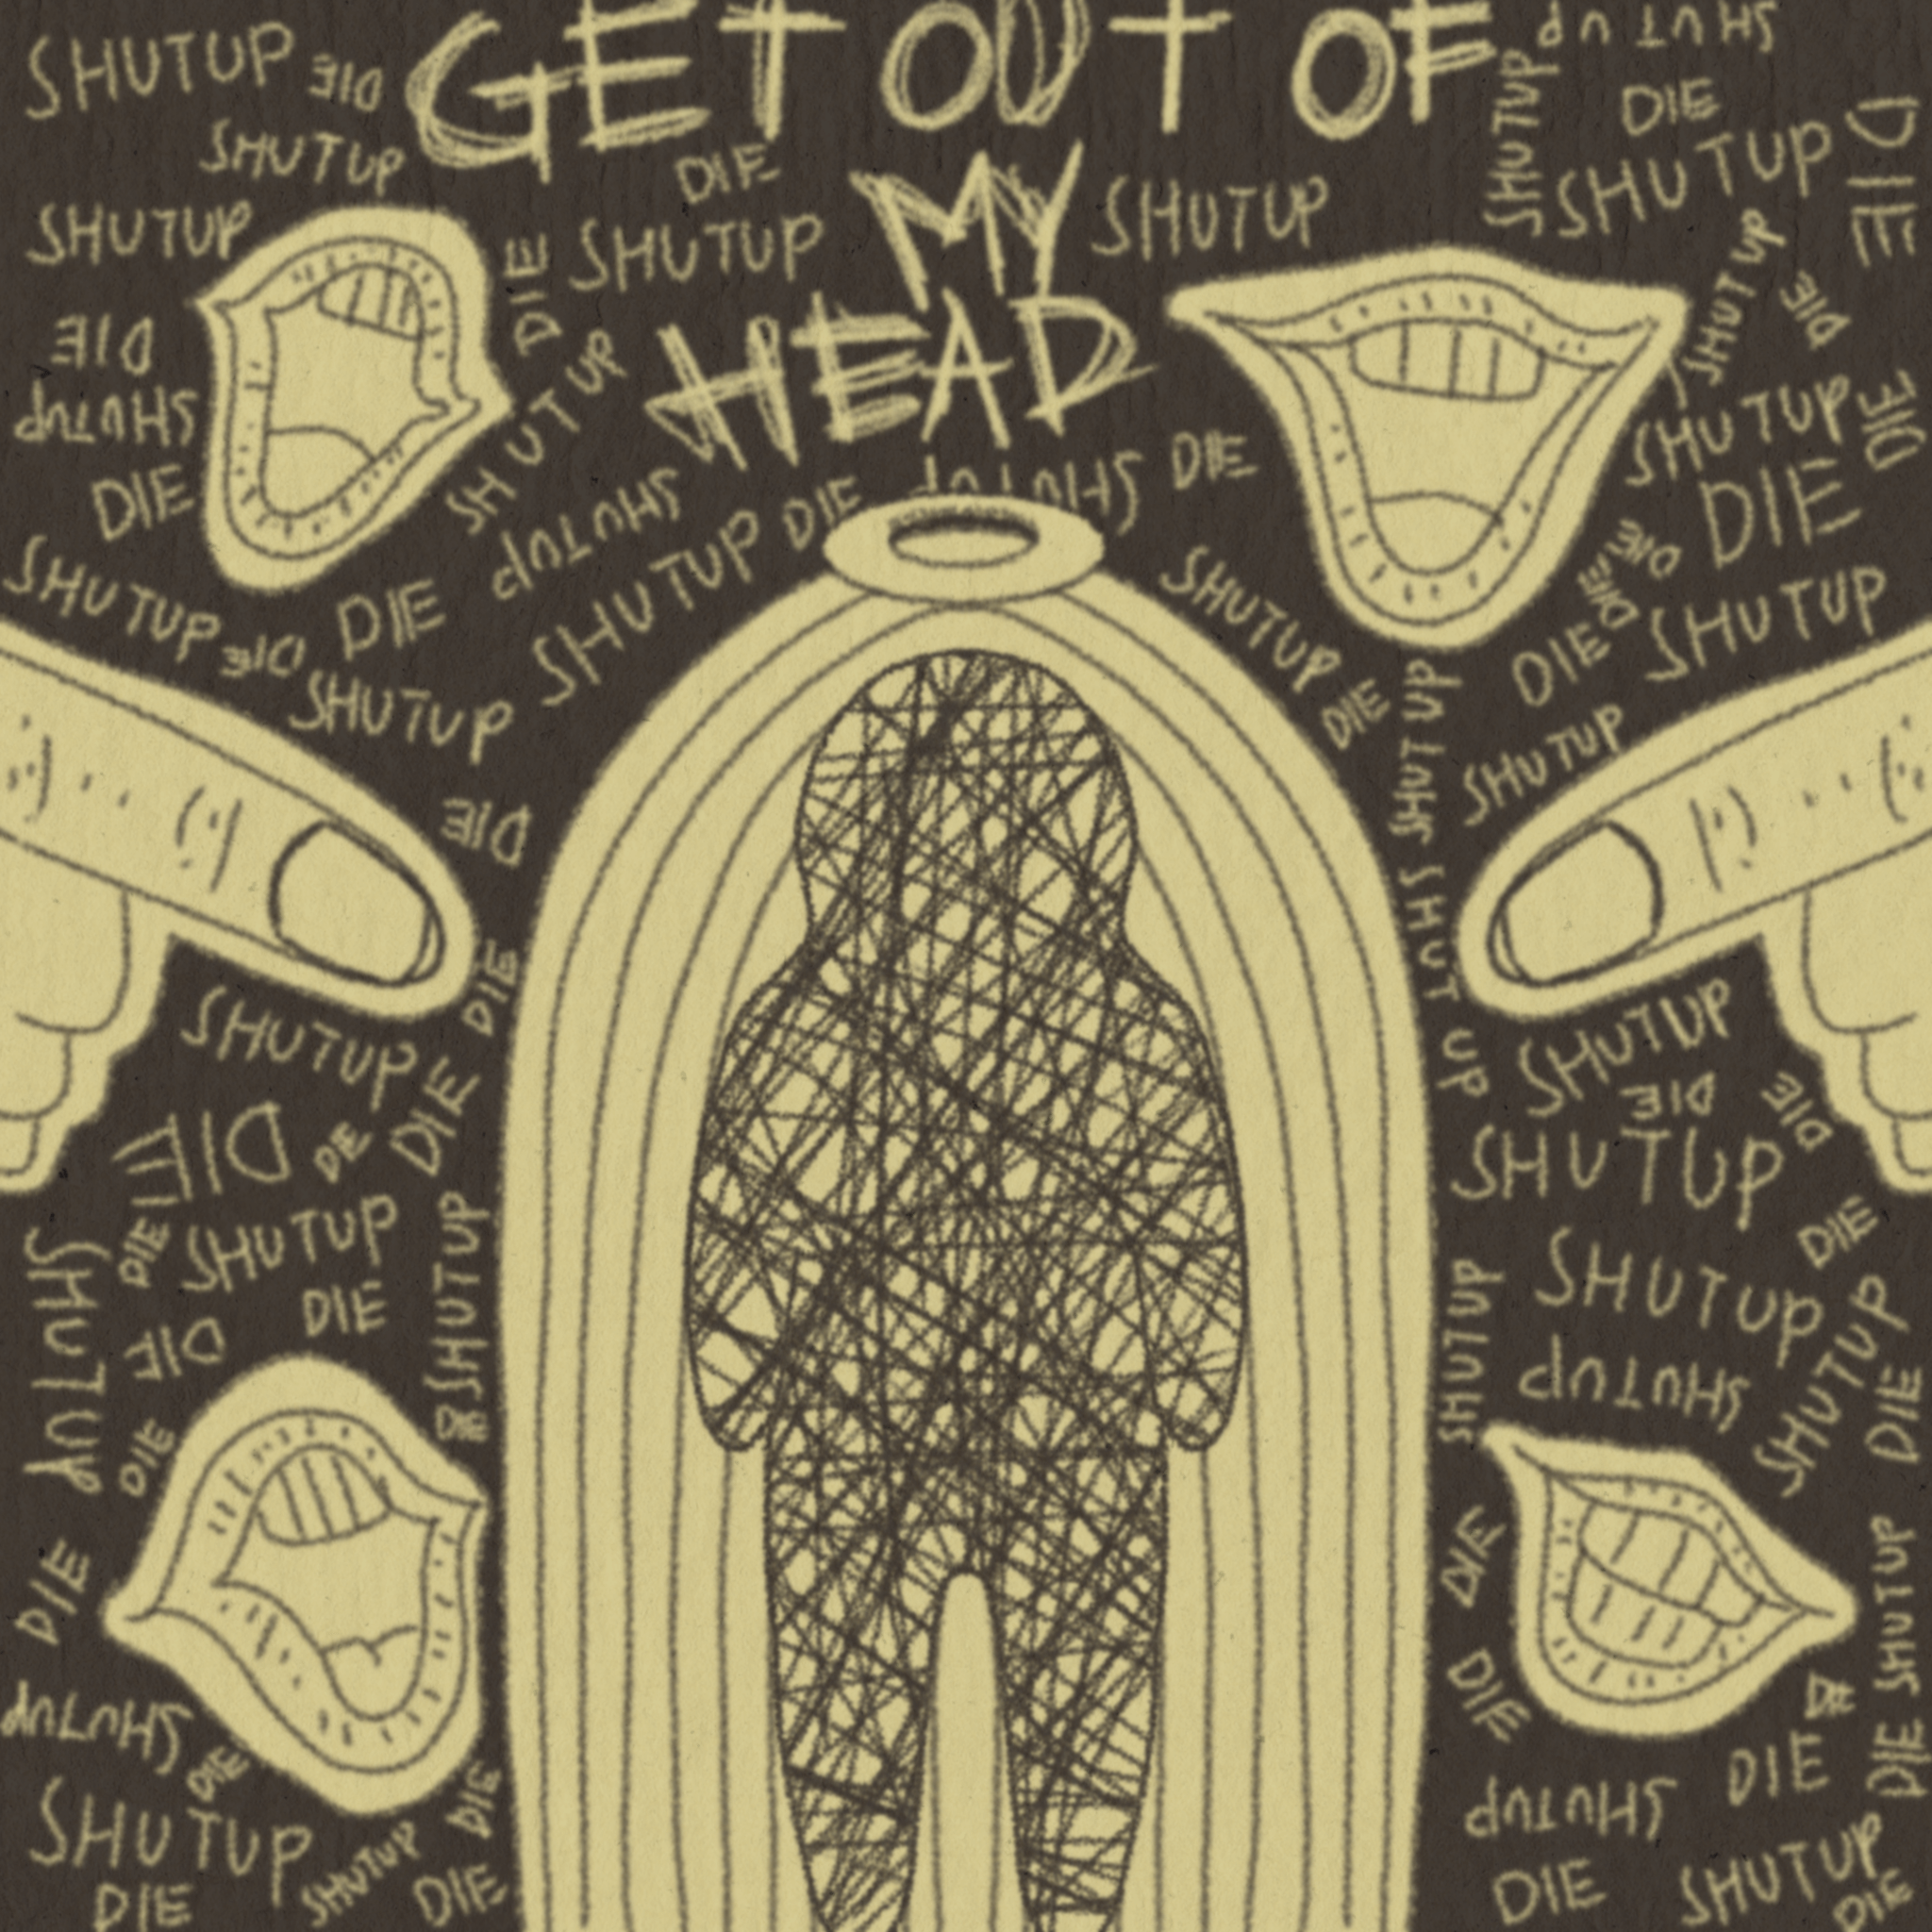 GET OUT OF
MY
HEAD
SHUTUP DIE
SHUTUP
SHUTUP
DIE
SHUTUP
DIE
SHUTUP
DIE
DIE
SHUTUP
SHUTUP
DIE
SHUTUP
SHUTUP
DIE
SHUTUP
SHUTUP DIE
SHUTUP
DIE
SHUTUP
SHUTUP
DIE
SHUTUP
DIE
SHUTUP
DIE
SHUTUP
DIE
SHUTUP
DIE
DIE
DIE
DIE
SHUTUP
DIE
SHUTUP
SHUTUP
DIE
SHUT UP
SHUT UP
DIE
DIE
SHUTUP
DIE
DIE
DIE
SHUTUP
DIE
SHUTUP
DIE
SHUTUP
DIE
DIE
DIE
SHUTUP
DIE
SHUTUP
DIE
SHUTUP
DIE
DIE
SHUTUP
DIE
DIE
SHUTUP
DIE
SHUTUP
SHUTUP
SHUTUP
SHUTUP
DIE
DIE
DIE
SHUTUP
DIE
DIE
DIE
SHUTUP
DIE
SHUTUP
DIE